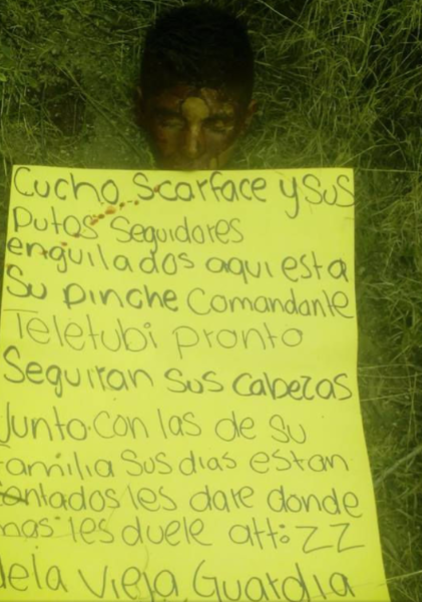 Cucho Scarface y sus
putos seguidores
enguilados aqui esta
su pinche comandante
Teletubi pronto
Seguiran sus cabezas
junto con las de su
familia sus dias estan
contados les dare donde
mas les duele att: ZZ
dela vieja Guardia